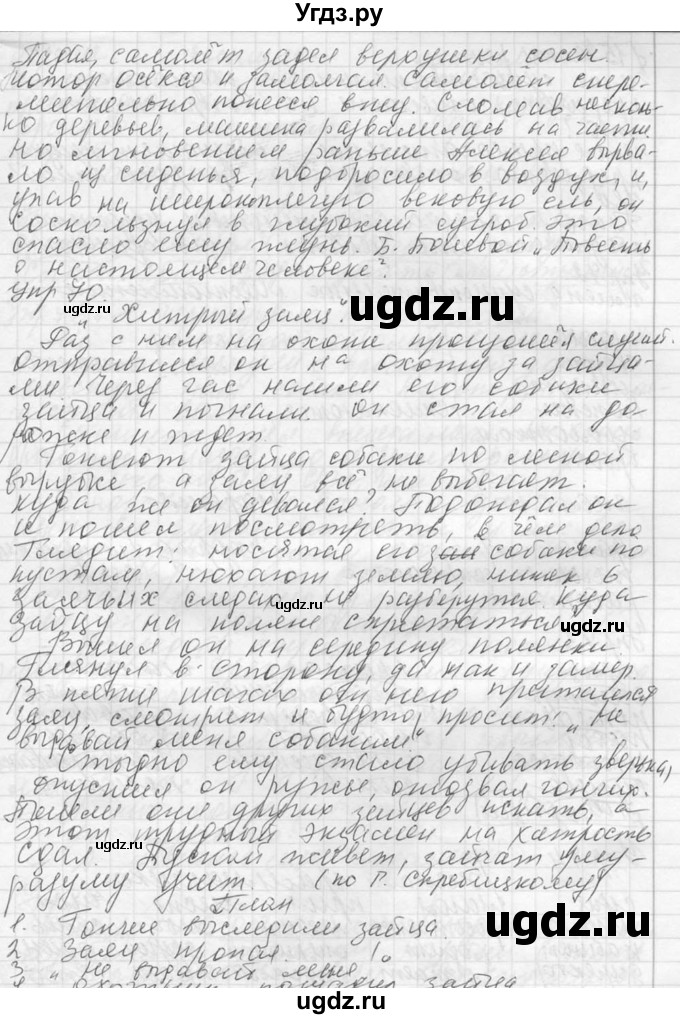 Угдз.ру
Падая, самолёт задел верхушки сосен.
Мотор осёкся и замолчал. Самолёт стре-
мительно понёсся вниз. Сломав несколь-
ко деревьев, машина развалилась на части,
но мгновением раньше Алексея вырва-
ло из сиденья, подбросило в воздух, и,
упав на широкоплечую вековую ель, он
соскользнул в глубокий сугроб. Это
спасло ему жизнь. Б. Полевой „Повесть
о настоящем человеке".
Упр 70.
ugdz.ru
„Хитрый заяц".
Раз с ним на охоте произошёл случай.
Отправился он на охоту за зайца-
ми. Через час нашли его собаки
зайца и погнали. Он стал на до-
рожке и ждёт.
Гоняют зайца собаки по лесной
вырубке, а заяц всё не выбегает.
Куда же он девался? Подождал он
и пошёл посмотреть, в чём дело.
Глядит: носятся его зай собаки по
кустам, нюхают землю, никак в
заячьих следах не разберутся. Куда
ugdz.ru
зайцу на поляне спрятаться?
Вышел он на середину полянки.
Глянул в сторону, да так и замер.
В пяти шагах от него притаился
заяц, смотрит и будто просит: „Не
выдавай меня собакам!"
ugdz.ru
Стыдно ему стало убивать зверька,
опустил он ружьё, отозвал гончих.
Пошли они других зайцев искать, а
этот трудный экзамен на хитрость
сдал. Пускай живёт, зайчат уму-
разуму учит. (по Г. Скребицкому)
План
ugdz.ru
1. Гончие выследили зайца.
2 Заяц пропал.
3 „Не выдавай меня!"
ugdz.ru
ugdz.ru